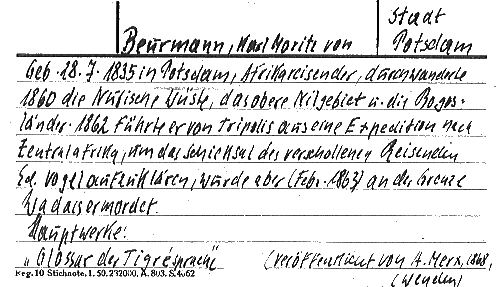 Stadt
Beurmann, Karl Moritz von Potsdam
Geb. 28. 7. 1835 in Potsdam, Afrikareisender, durchwanderte
1860 die Nubische Wüste, das obere Nilgebiet u. die Bogos-
länder. 1862 führte er von Tripolis aus eine Expedition nach
Zentralafrika, um das Schicksal des verschollenen Reisenden
Ed. Vogel aufzuklären, wurde aber (Febr. 1863) an der Grenze
Wadais ermordet.
Hauptwerke:
"Glossar der Tigrésprache" (veröffentlicht von A. Merx, 1868,
Reg. 10 Stichnote. 1. 50. 232000. A. 803. S. 4062